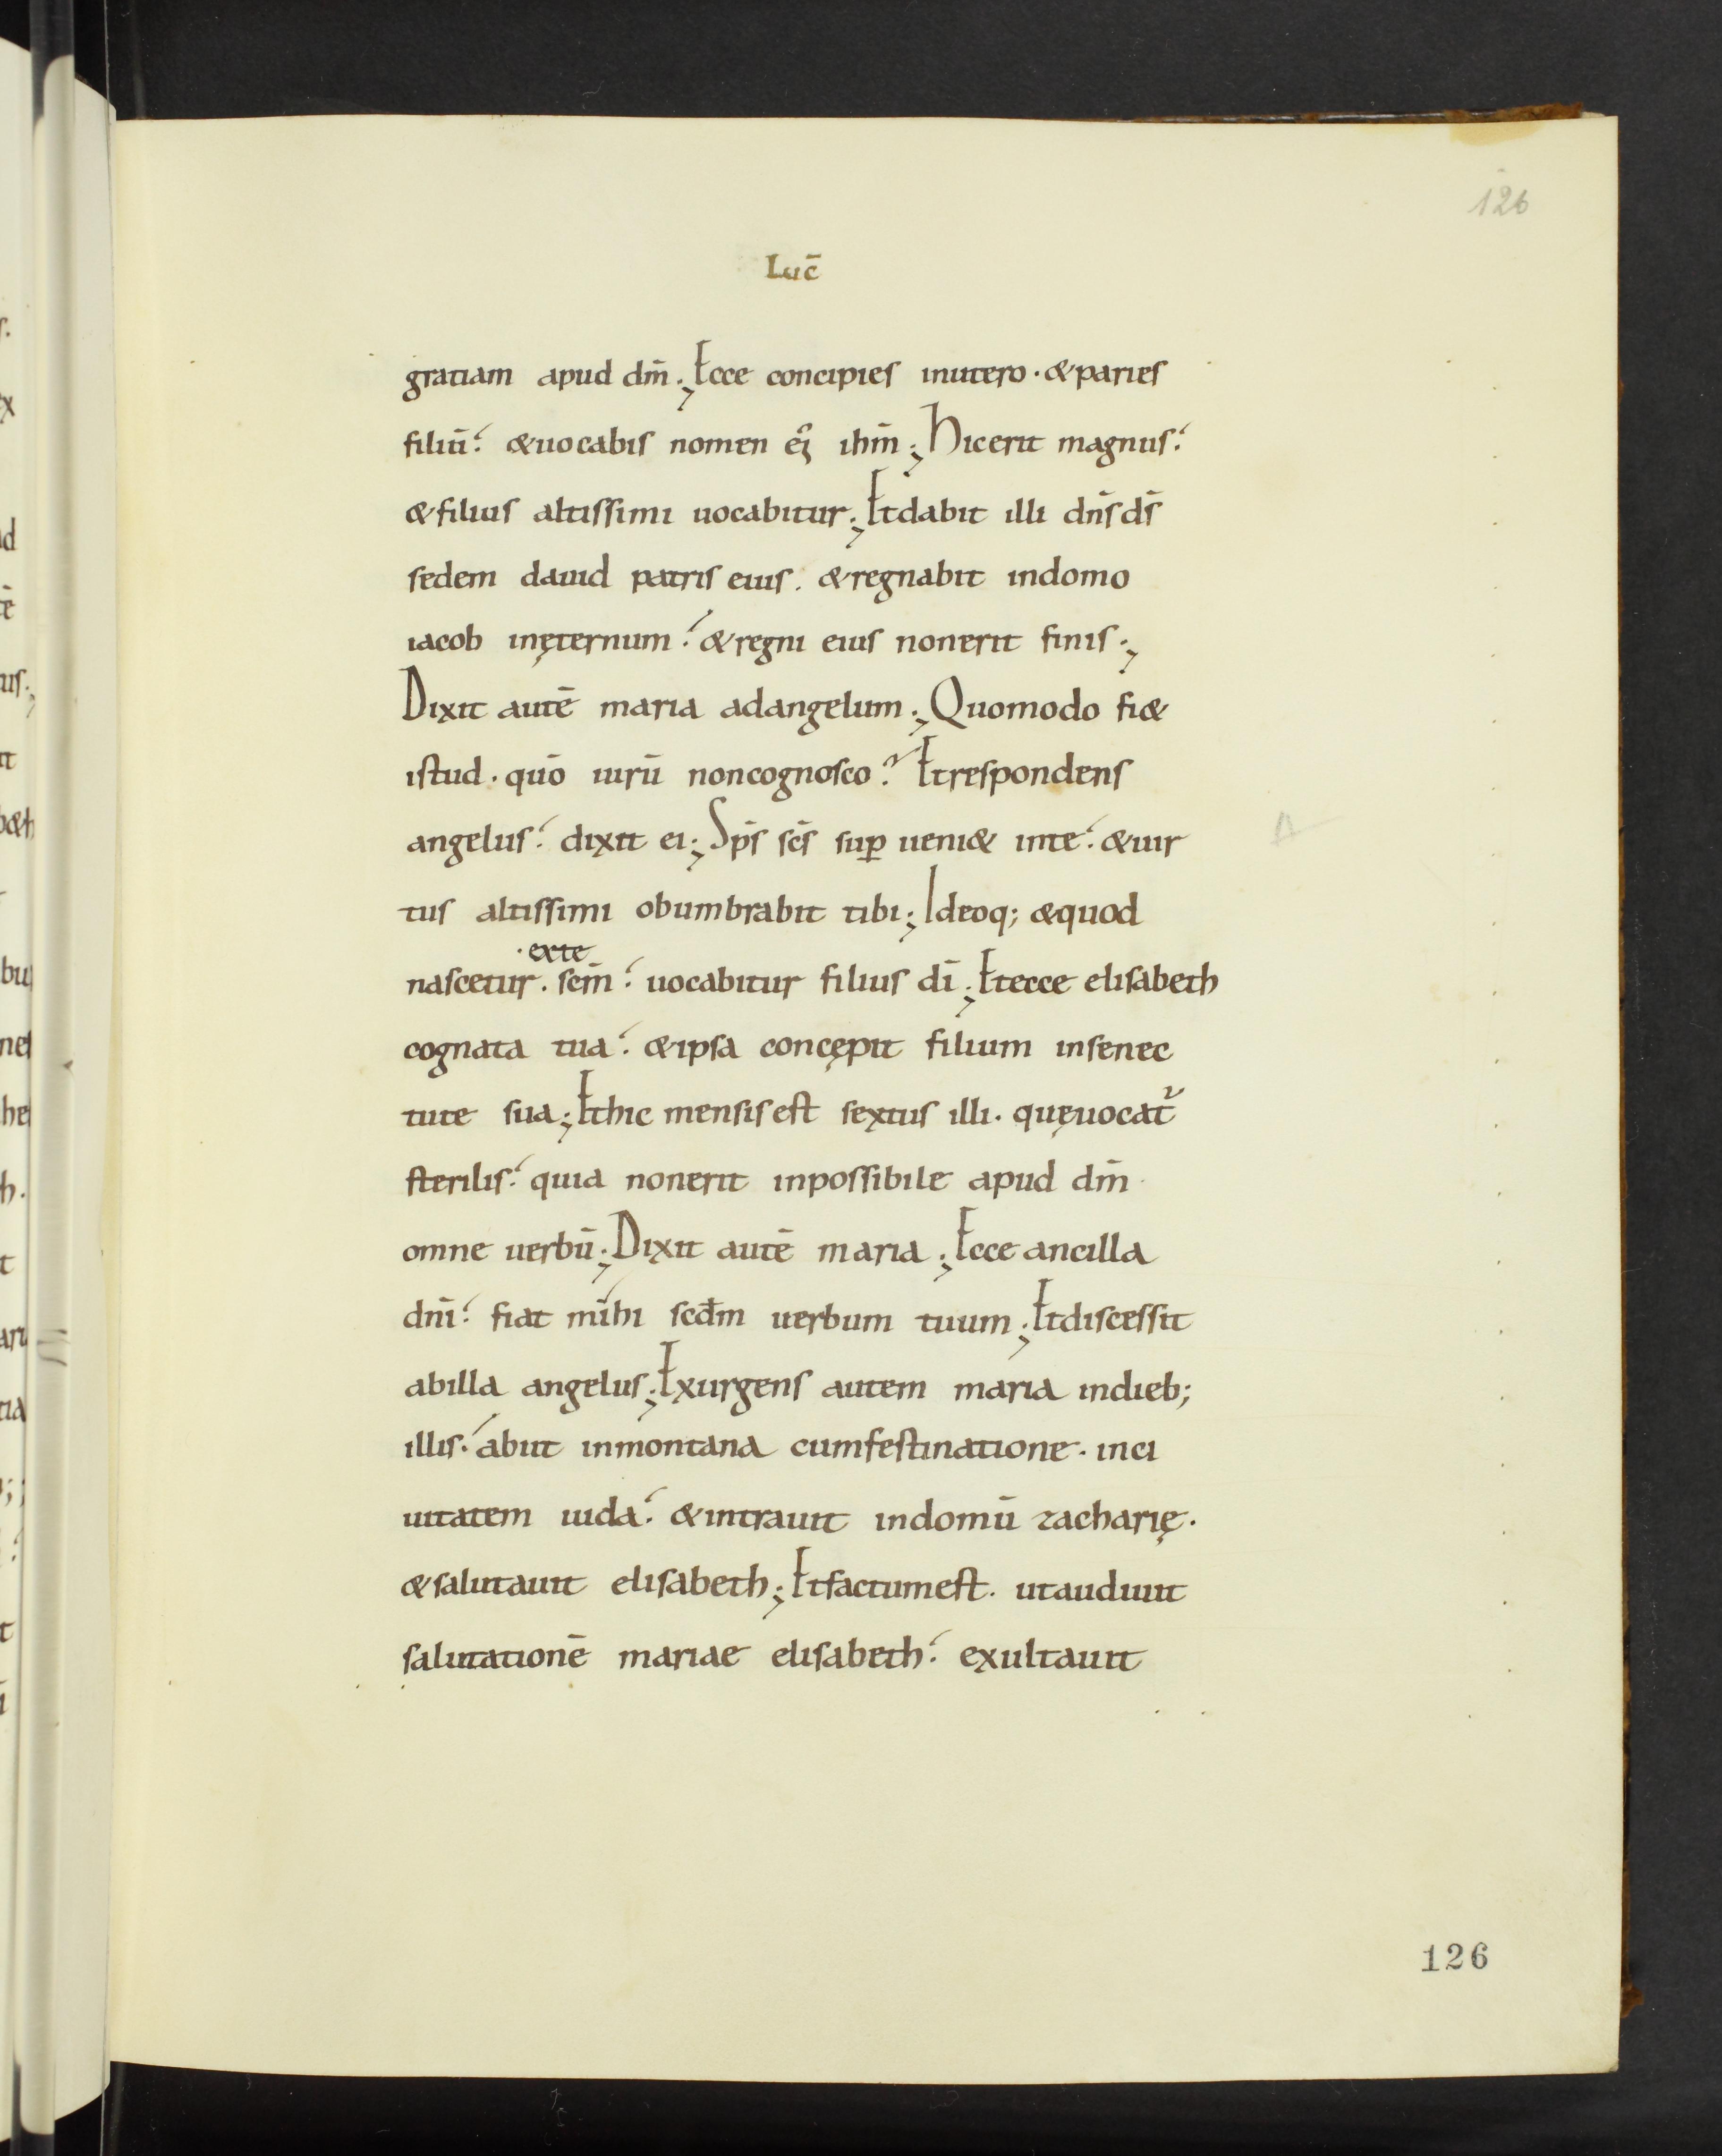 126
Luc̄
gratiam apud dm̄., Ecce concipies inutero · & paries
filiū? & uocabis nomen ei᾿ ihm̄., Hicerit magnus?
& filius altissimi uocabitur., Etdabit illi dn̄s ds̄
sedem dauid patris eius. & regnabit indomo
iacob inęternum? & regni eius nonerit finis.,
Dixit autē maria adangelum., Quomodo fi&
istud · quō uirū noncognosco? Etrespondens
angelus? dixit ei., Sps̄ scs̄ suꝑ ueni& inte? & uir
tus altissimi obumbrabit tibi., Ideoq; & quod
· exte
nascetur. scm̄? uocabitur filius dī., Etecce elisabeth
cognata tua? & ipsa concępit filium insenec
tute sua., Ethic mensis est sextus illi. quęuocat᷑
sterilis? quia nonerit inpossibile apud dm̄
omne uerbū., Dixit autē maria., Ecce ancilla
dnī? fiat mihi scd̄m uerbum tuum., Etdiscessit
abilla angelus., Exurgens autem maria indieb;
illis. abiit inmontana cumfestinatione. inci
uitatem iuda? & intrauit indomū zacharię.
& salutauit elisabeth., Etfactumest. utaudiuit
salutationē mariae elisabeth? exultauit
126